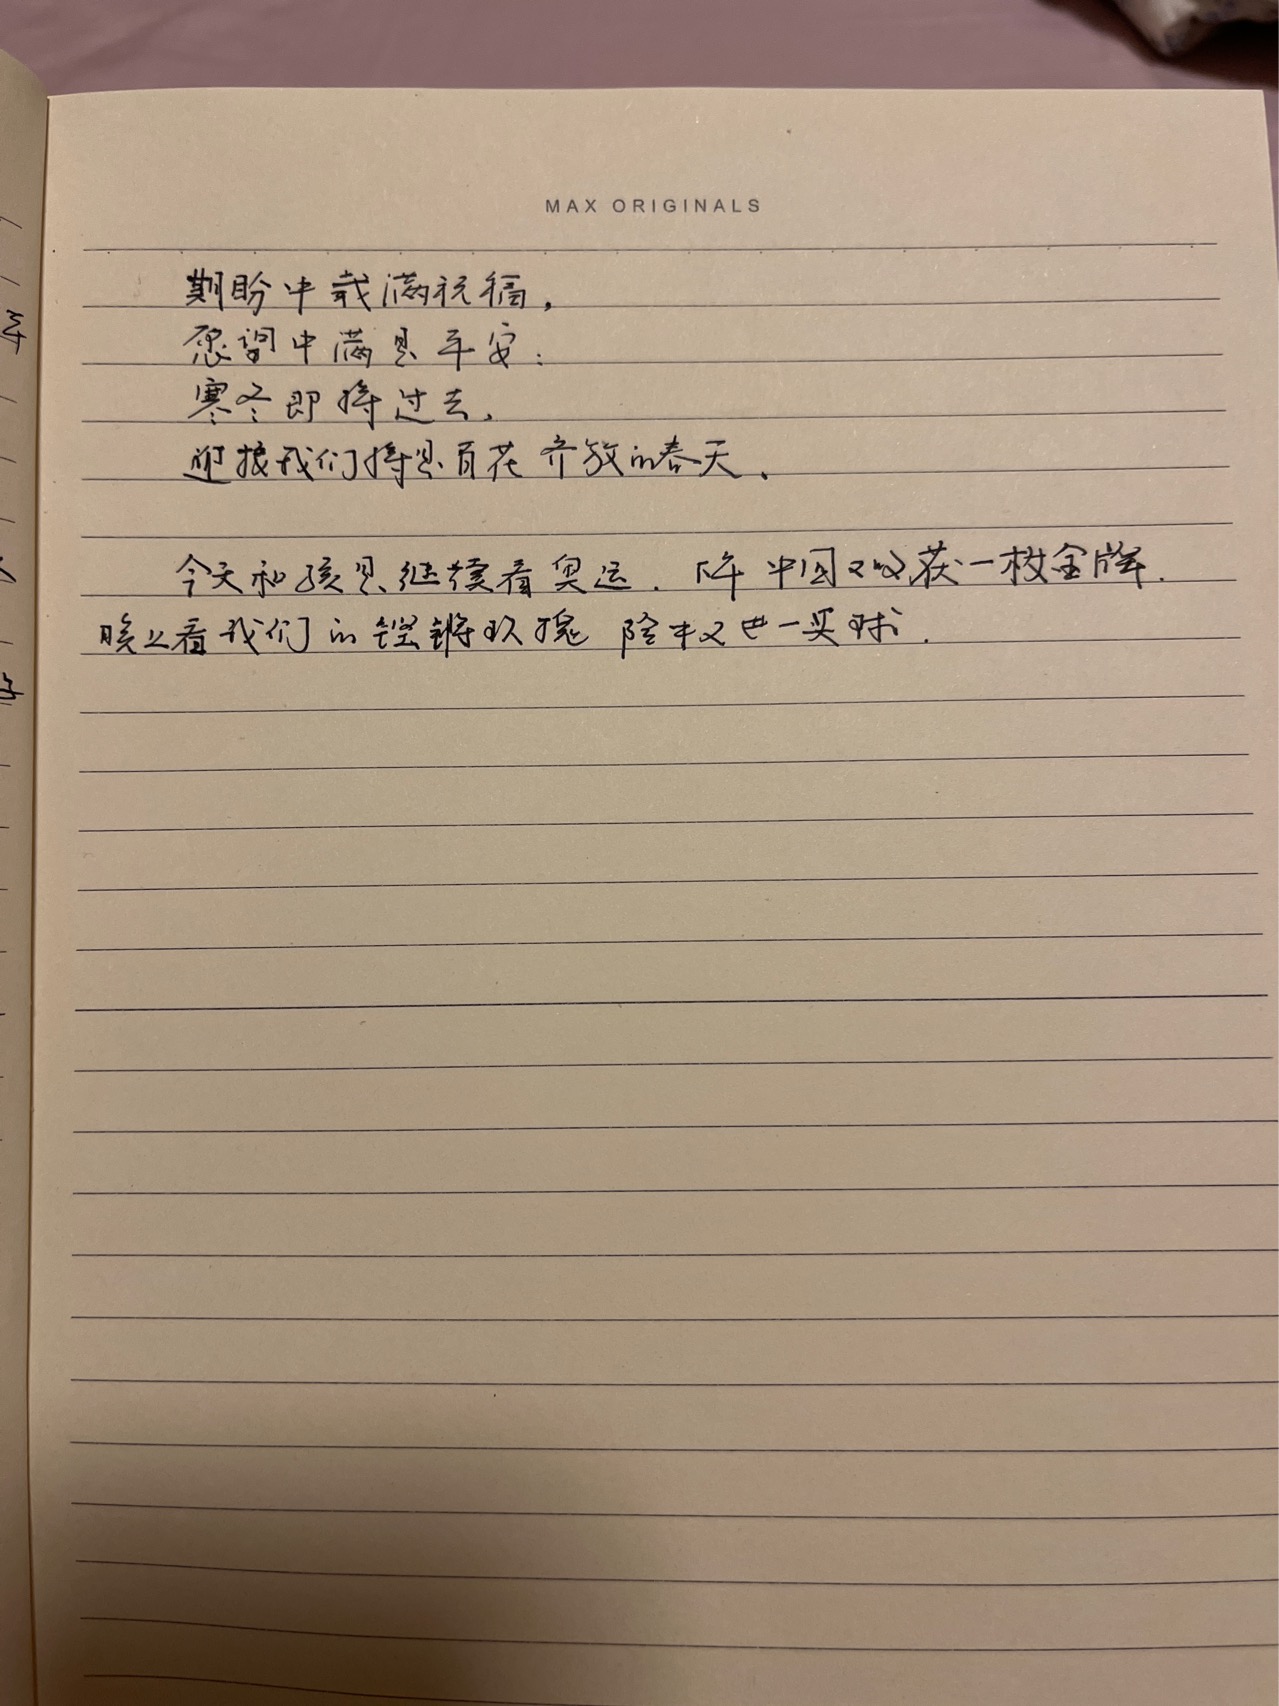 MAX ORIGINALS
期盼中载满祝福，
愿望中满是平安；
寒冬即将过去，
迎接我们将是百花齐放的春天。
今天和孩儿继续看奥运，下午中国又收获一枚金牌.
晚上看我们的铿锵玫瑰